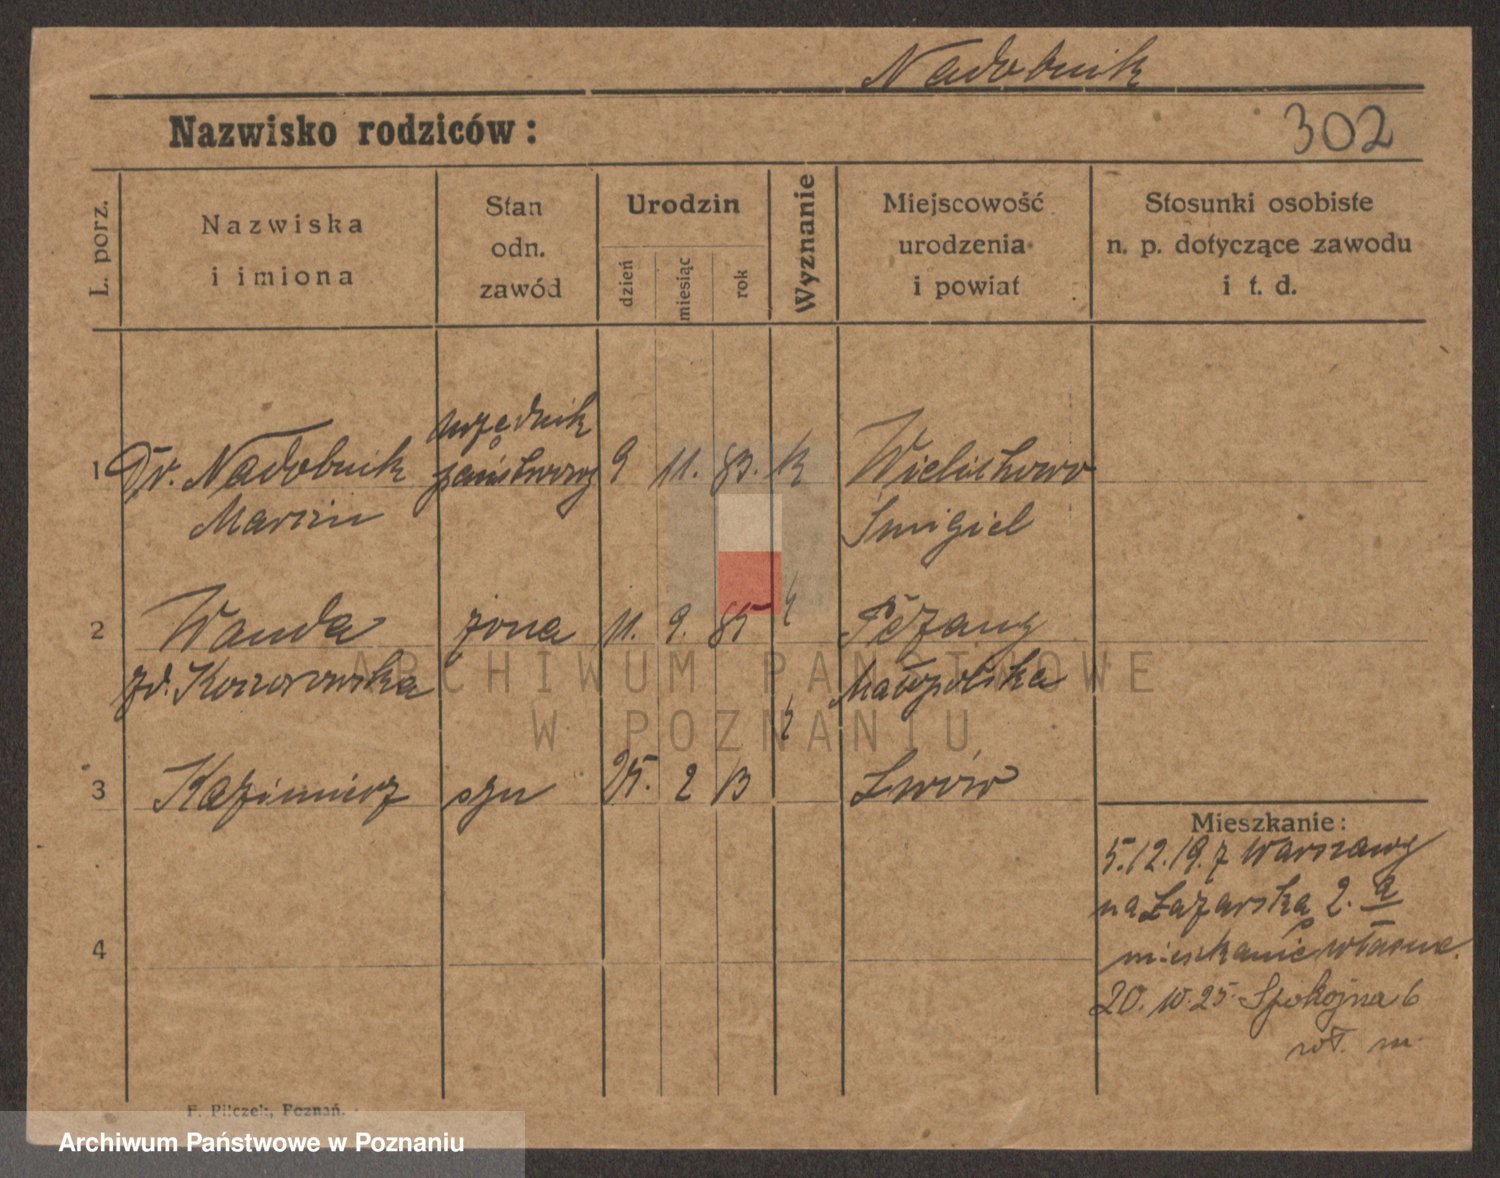 Nadobnik
Nazwisko rodziców:
302
L. porz.
Nazwiska
i imiona
Stan
odn.
zawód
Urodzin
dzień
miesiąc
rok
Wyznanie
Miejscowość
urodzenia
i powiat
Stosunki osobiste
n. p. dotyczące zawodu
i t. d.
urzędnik
1 Dr. Nadobnik państwowy 9 11. 83. k Wielichowo
Marcin Śmigiel
2 Wanda żona 11. 9. 85
zd. Małopolska
3 Kazimierz syn 25. 2 13 Lwów
4
Mieszkanie:
5.12.19. z Warszawy
na Łazarska 2. a
mieszkanie własne.
20. 10. 25. Spokojna 6
wł. m.
F. Pilczek, Poznań.
ARCHIWUM PAŃSTWOWE
W POZNANIU
Archiwum Państwowe w Poznaniu